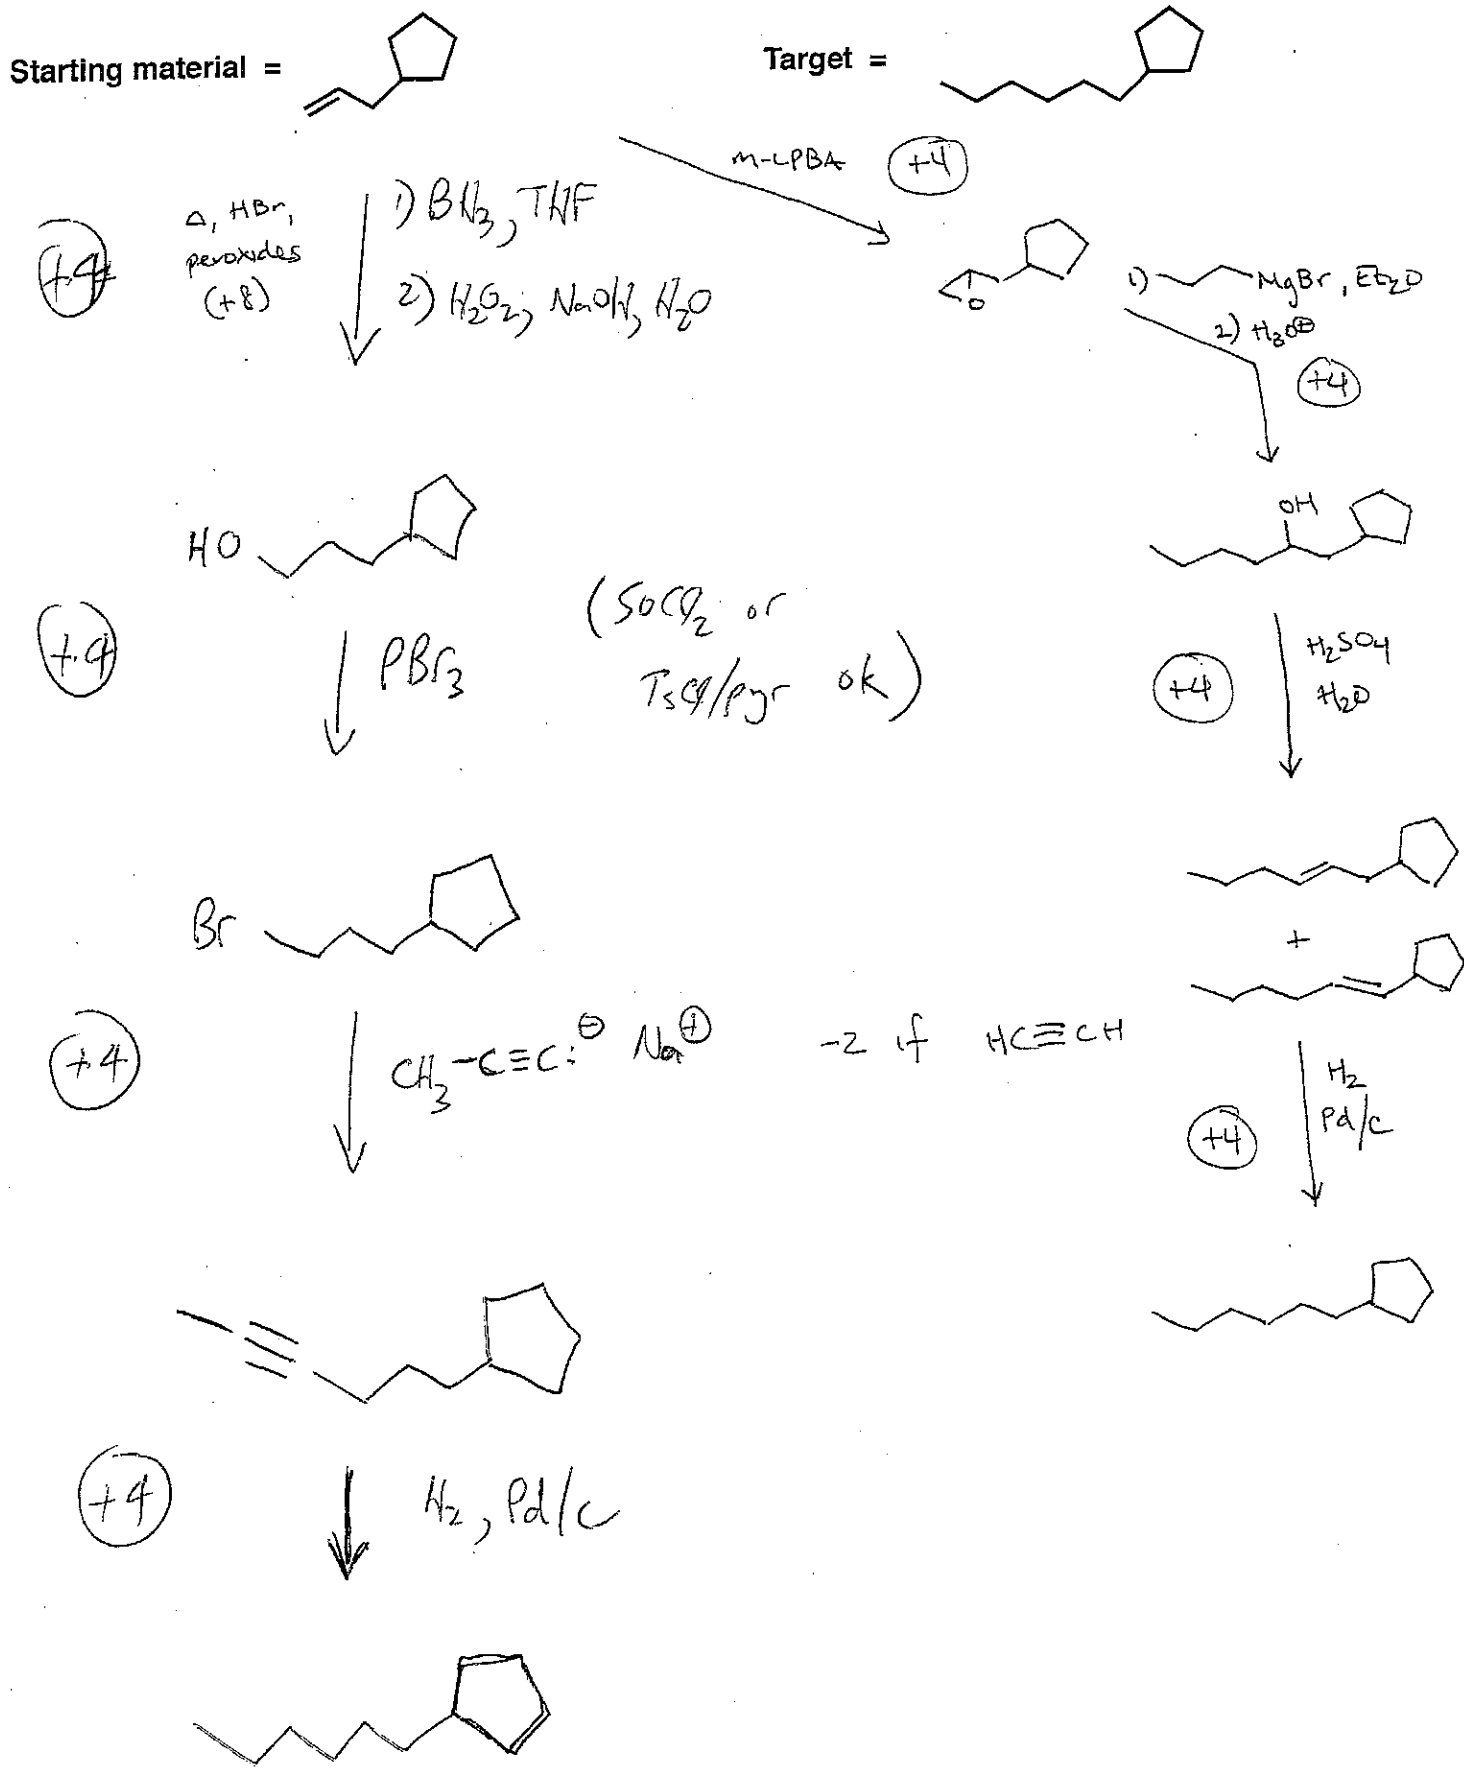 Starting material =
Target =
m-CPBA +4
+4
Δ, HBr,
peroxides
(+8)
1) BH3, THF
2) H2O2, NaOH, H2O
O
1) MgBr, Et2O
2) H3O⊕
+4
HO
OH
+4
PBr3
(SOCl2 or
TsCl/pyr ok)
+4
H2SO4
H2O
Br
+
+4
CH3-C≡C:⊖ Na⊕
-2 if HC≡CH
+4
H2
Pd/C
+4
H2, Pd/C